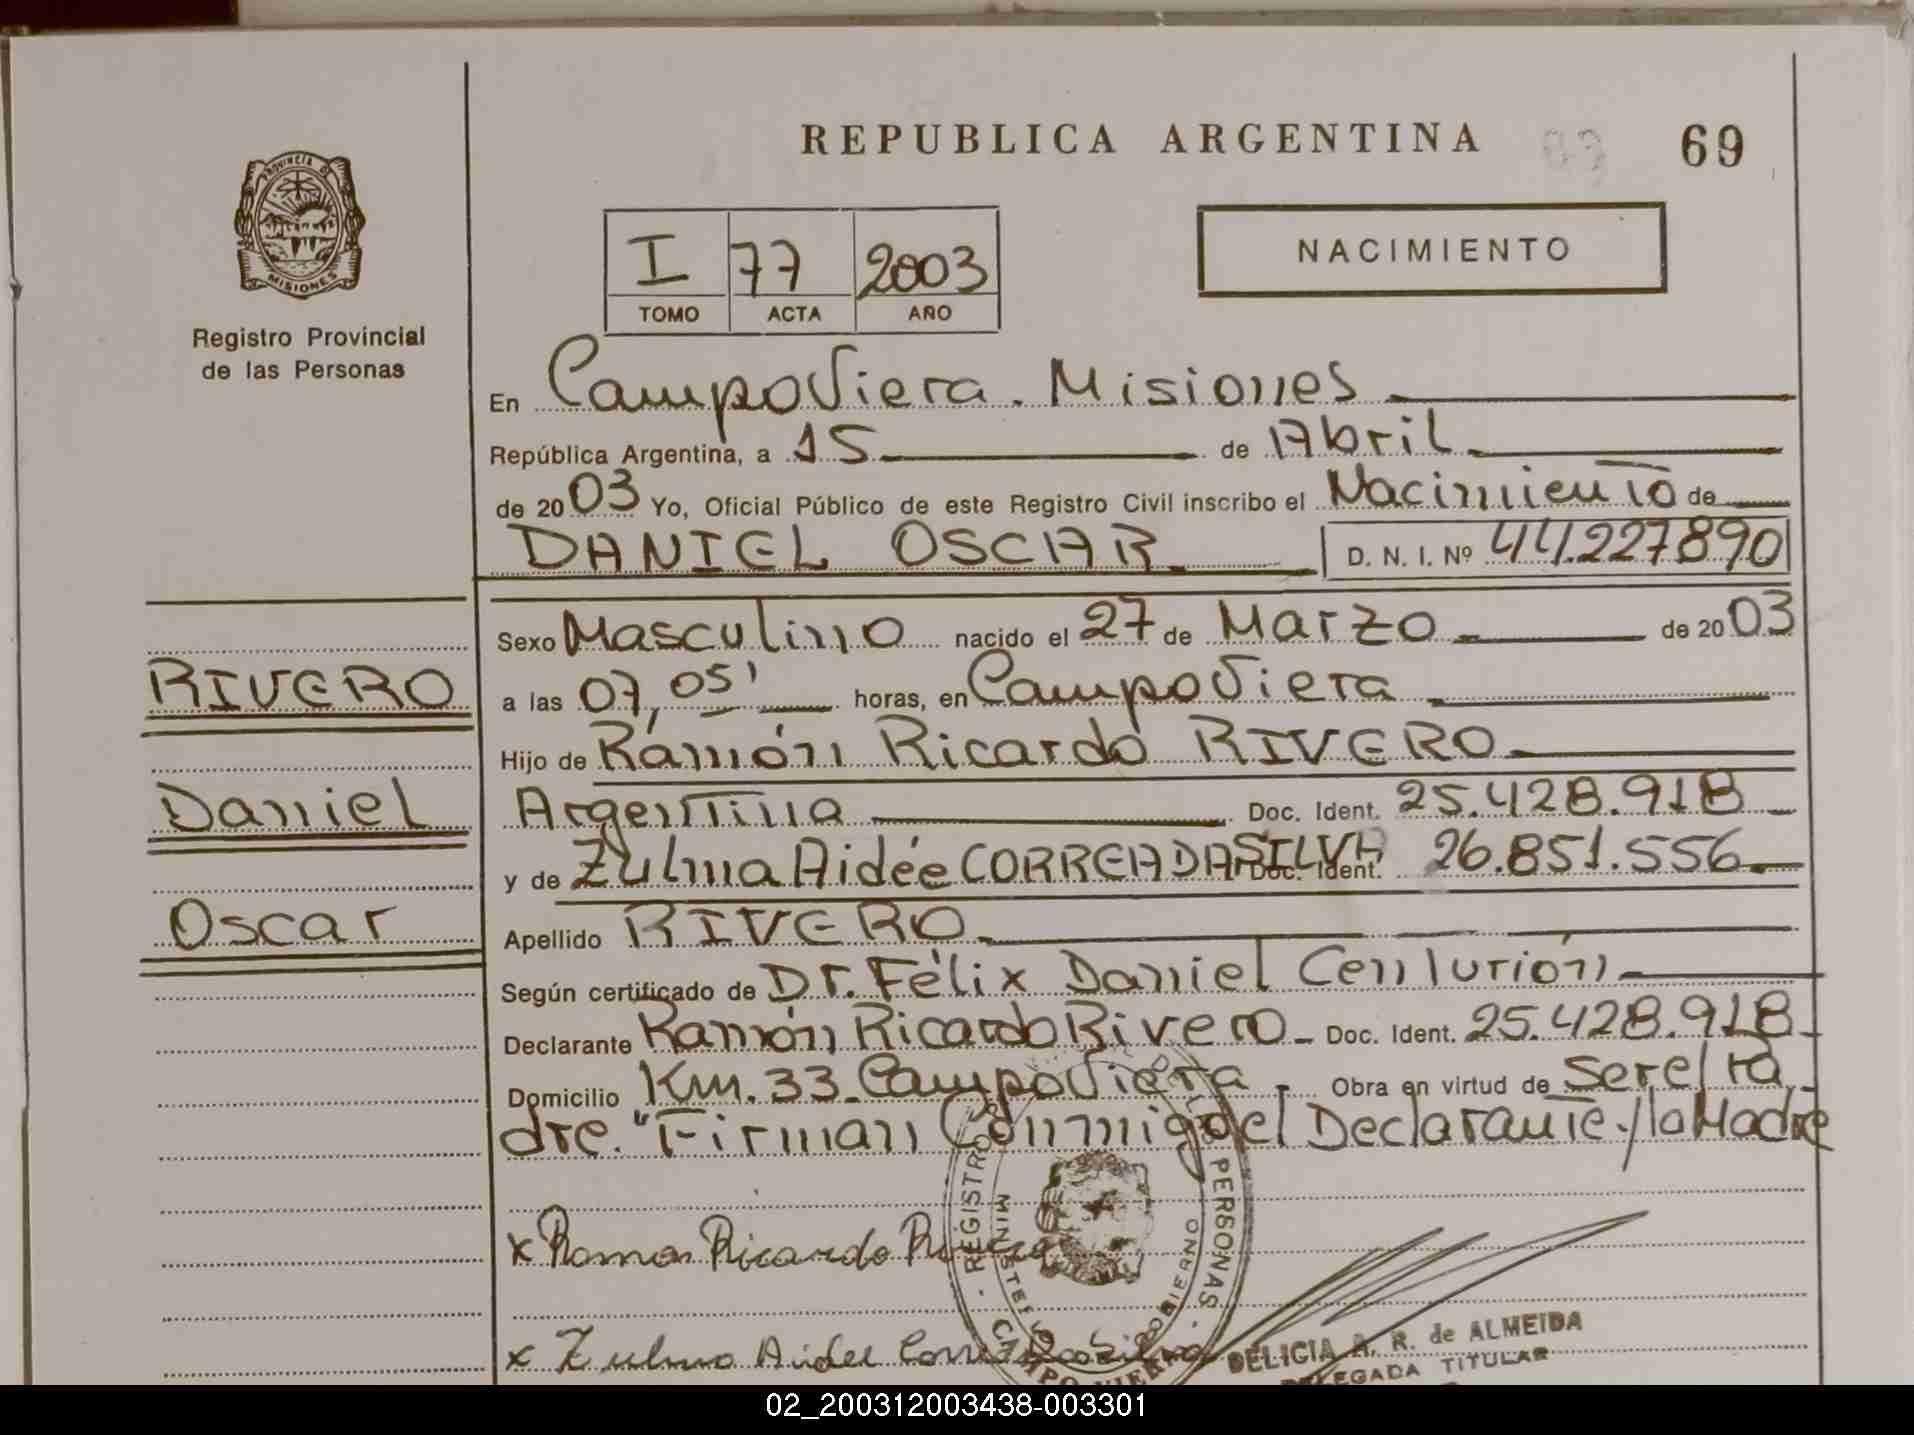 REPUBLICA ARGENTINA
69
PROVINCIA DE MISIONES
Registro Provincial
de las Personas
I 77 2003
TOMO ACTA AÑO
NACIMIENTO
En Campo Viera. Misiones
República Argentina, a 15 de Abril
de 2003 Yo, Oficial Público de este Registro Civil inscribo el Nacimiento de
DANIEL OSCAR D. N. I. Nº 44.227890
Sexo Masculino nacido el 27 de Marzo de 2003
RIVERO
a las 07,05' horas, en Campo Viera
Hijo de Ramón Ricardo RIVERO
Daniel
Argentina Doc. Ident. 25.428.918
y de Zulma Aidée CORREA DA SILVA Doc. Ident. 26.851.556
Oscar
Apellido RIVERO
Según certificado de Dr. Félix Daniel Centurión
Declarante Ramón Ricardo Rivero Doc. Ident. 25.428.918
Domicilio Km. 33 Campo Viera Obra en virtud de ser el Pa
dre. "Firman Conmigo el Declarante./la Madre
x Ramon Ricardo Rivero
x Zulma Aidee Correa Da Silva
REGISTRO DE LAS PERSONAS
CAMPO VIERA
DELICIA A. R. de ALMEIDA
DELEGADA TITULAR
02_200312003438-003301